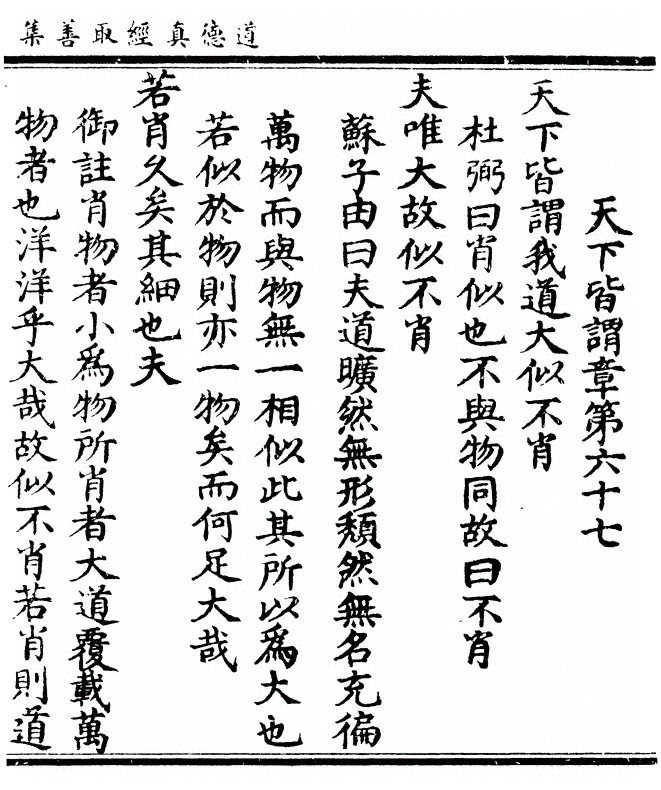 道德真經取善集
天下皆謂章第六十七
天下皆謂我道大似不肖
杜弼曰肖似也不與物同故曰不肖
夫唯大故似不肖
蘇子由曰夫道曠然無形頹然無名充徧
萬物而與物無一相似此其所以爲大也
若似於物則亦一物矣而何足大哉
若肖久矣其細也夫
御註肖物者小爲物所肖者大道覆載萬
物者也洋洋乎大哉故似不肖若肖則道